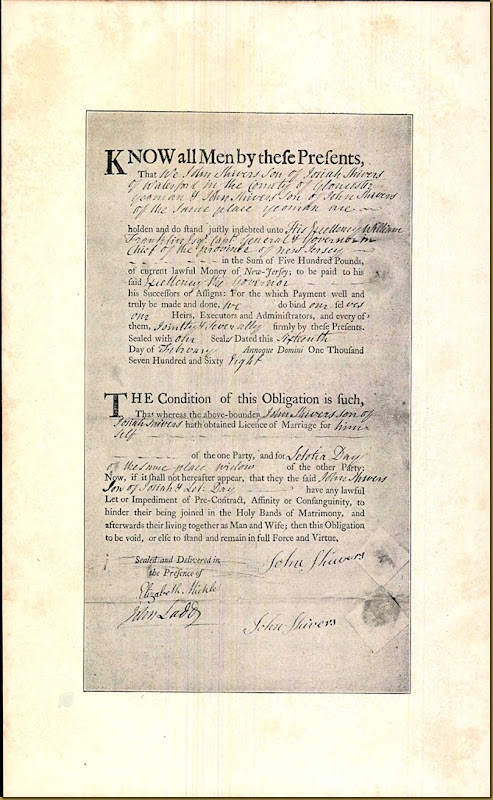 KNOW all Men by theſe Preſents,
That We John Shivers Son of Josiah Shivers
of Waterford in the County of Gloucester
yeoman & John Shivers Son of John Shivers
of the same place yeoman are
holden and do ſtand juſtly indebted unto His Excellency William
Franklin Esqr. Capt. General & Governor in
Chief of the province of New Jersey
in the Sum of Five Hundred Pounds,
of current lawful Money of New-Jerſey; to be paid to his
ſaid Excellency the Governor
his Succeſſors or Aſſigns: For the which Payment well and
truly be made and done, We do bind our ſelves
our Heirs, Executors and Adminiſtrators, and every of
them, Jointly & Severally firmly by theſe Preſents.
Sealed with our Seals Dated this Sixteenth
Day of February Annoque Domini One Thouſand
Seven Hundred and Sixty Eight
THE Condition of this Obligation is ſuch,
That whereas the above-bounden John Shivers son of
Josiah Shivers hath obtained Licence of Marriage for him-
self
of the one Party, and for Letotia Day
of the same place widow of the other Party:
Now, if it ſhall not hereafter appear, that they the ſaid John Shivers
Son of Josiah & Let. Day have any lawful
Let or Impediment of Pre-Contract, Affinity or Conſanguinity, to
hinder their being joined in the Holy Bands of Matrimony, and
afterwards their living together as Man and Wife; then this Obligation
to be void, or elſe to ſtand and remain in full Force and Virtue.
Sealed and Delivered in
the Preſence of
John Shivers
Elizabeth Mickle
John Ladd
John Shivers